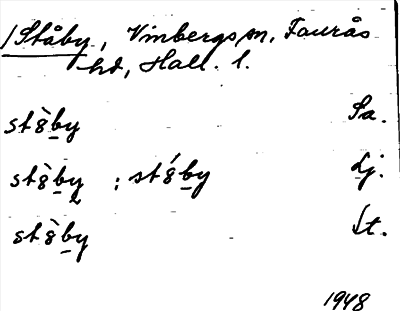 /Ståby, Vinbergs sn, Faurås
hd, Hall. l.
stò̀8by Sa.
st8̀by : st8́by Lj.
st8̀by St.
1948